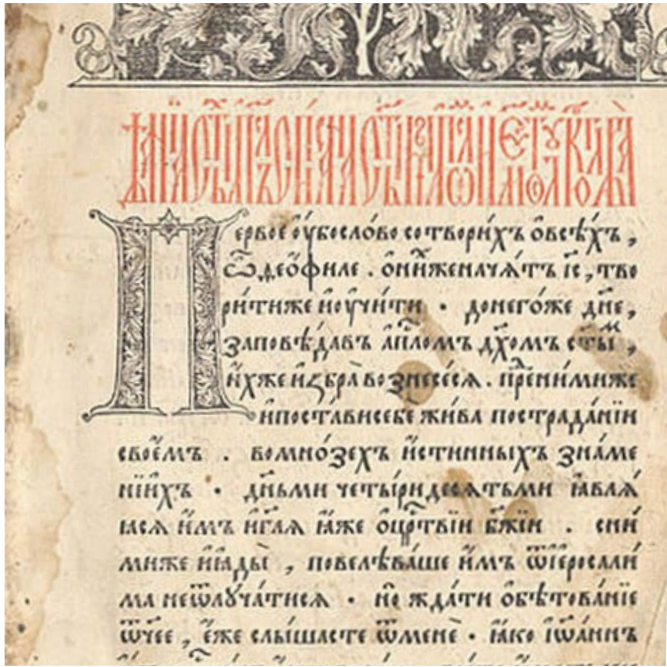 Первое ѹ҆бо сло́во сотвори́хъ ѡ҆всѣ́хъ,
ѽ ѳео́филе. ѻ҆ни́же начѧ́тъ і҆с, тво
ри́тиже и҆ ѹ҆чи́ти. донего́же дн҃е,
заповѣ́давъ а҆пⷭ҇ломъ дх҃омъ ст҃ыⷨ,
и҆́хже и҆збра̀ вознесе́сѧ. пре́ними́же
и҆поста́висебе жи́ва пострада́нїи
свое́мъ. вомно́зехъ и҆́стинныхъ зна́ме
нїихъ. дн҃ьми четы́ридесѧтьми ꙗ҆влѧ́ѧ
ꙗсѧ и҆́мъ и҆гл҃ѧ ꙗ҆́же ѡ҆црⷭ҇твїи бж҃їи. сни́
миже и҆ꙗды̀, повелѣва́ше и҆́мъ ѿі҆еросали́
ма неѿлꙋча́тисѧ. но жда́ти ѡ҆бѣтова́нїе
ѿч҃ее, е҆́же слы́шасте ѿменѐ. ꙗ҆́ко і҆ѡа́ннъ